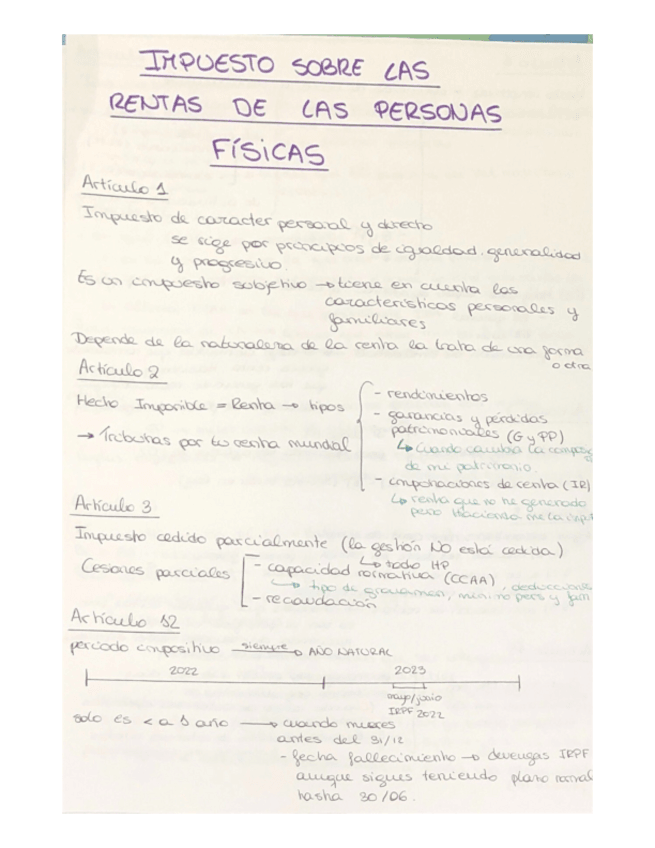 IMPUESTO SOBRE LAS
RENTAS DE LAS PERSONAS
FÍSICAS
Artículo 1
Impuesto de caracter personal y directo
se rige por principios de igualdad, generalidad
y progresivo.
Es un impuesto subjetivo → tiene en cuenta las
características personales y
familiares
Depende de la naturaleza de la renta la trata de una forma
o otra
Artículo 2
Hecho Imponible = Renta → tipos
- rendimientos
- ganancias y pérdidas
patrimoniales (G y PP)
↳ Cuando cambia la compos
de mi patrimonio.
- imputaciones de renta (IR)
↳ renta que no he generado
pero Hacienda me la imput
→ Tributas por tu renta mundial
Artículo 3
Impuesto cedido parcialmente (la gestión NO está cedida)
↳ todo HP
Cesiones parciales
- capacidad normativa (CCAA)
↳ tipo de gravamen, mínimo pers y fam, deduccione
- recaudación
Artículo 12
período impositivo siempre → AÑO NATURAL
2022 2023
mayo/junio
IRPF 2022
solo es < a 1 año → cuando mueres
antes del 31/12
- fecha fallecimiento → devengas IRPF
aunque sigues teniendo plazo normal
hasha 30/06.